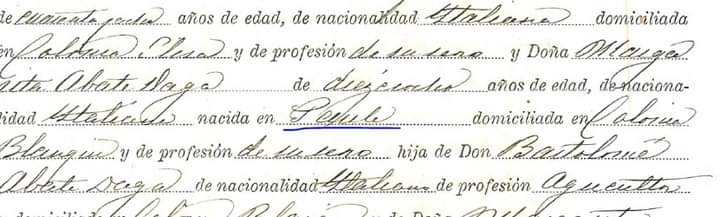 de cuarenta ocho años de edad, de nacionalidad Italiana domiciliada
en Colonia Elisa y de profesión de su sexo y Doña Marga
rita Abate Daga de diez ocho años de edad, de naciona-
lidad Italiana nacida en domiciliada en Colonia
y de profesión de su sexo hija de Don Bartolomé
Abate Daga de nacionalidad Italiano de profesión Agricultor
domiciliado en Colonia y de Doña